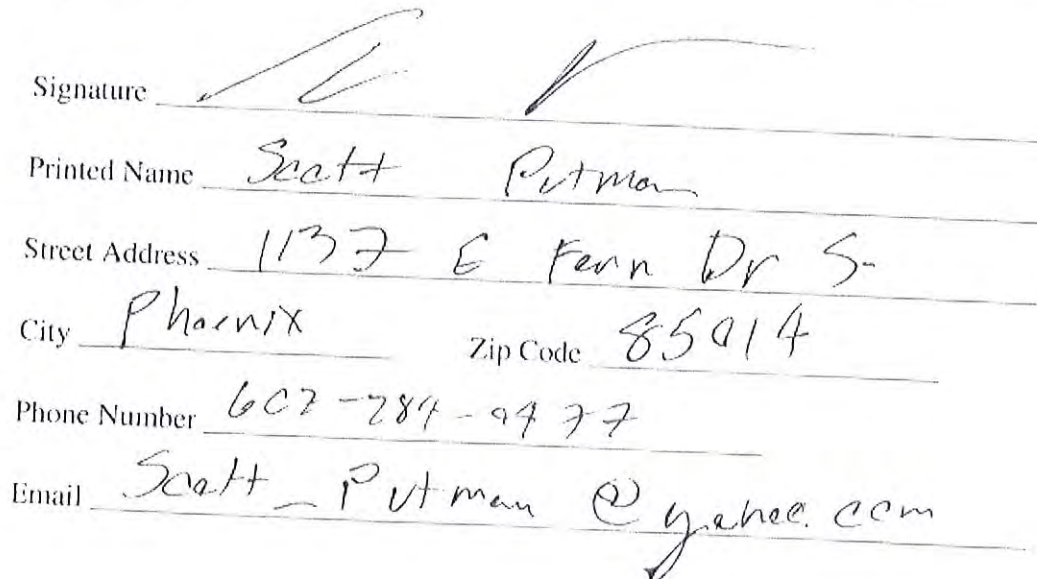 Signature
Printed Name Scott Putman
Street Address 1137 E Fern Dr S
City Phoenix Zip Code 85014
Phone Number 602-284-9477
Email Scott_Putman@yahoo.com